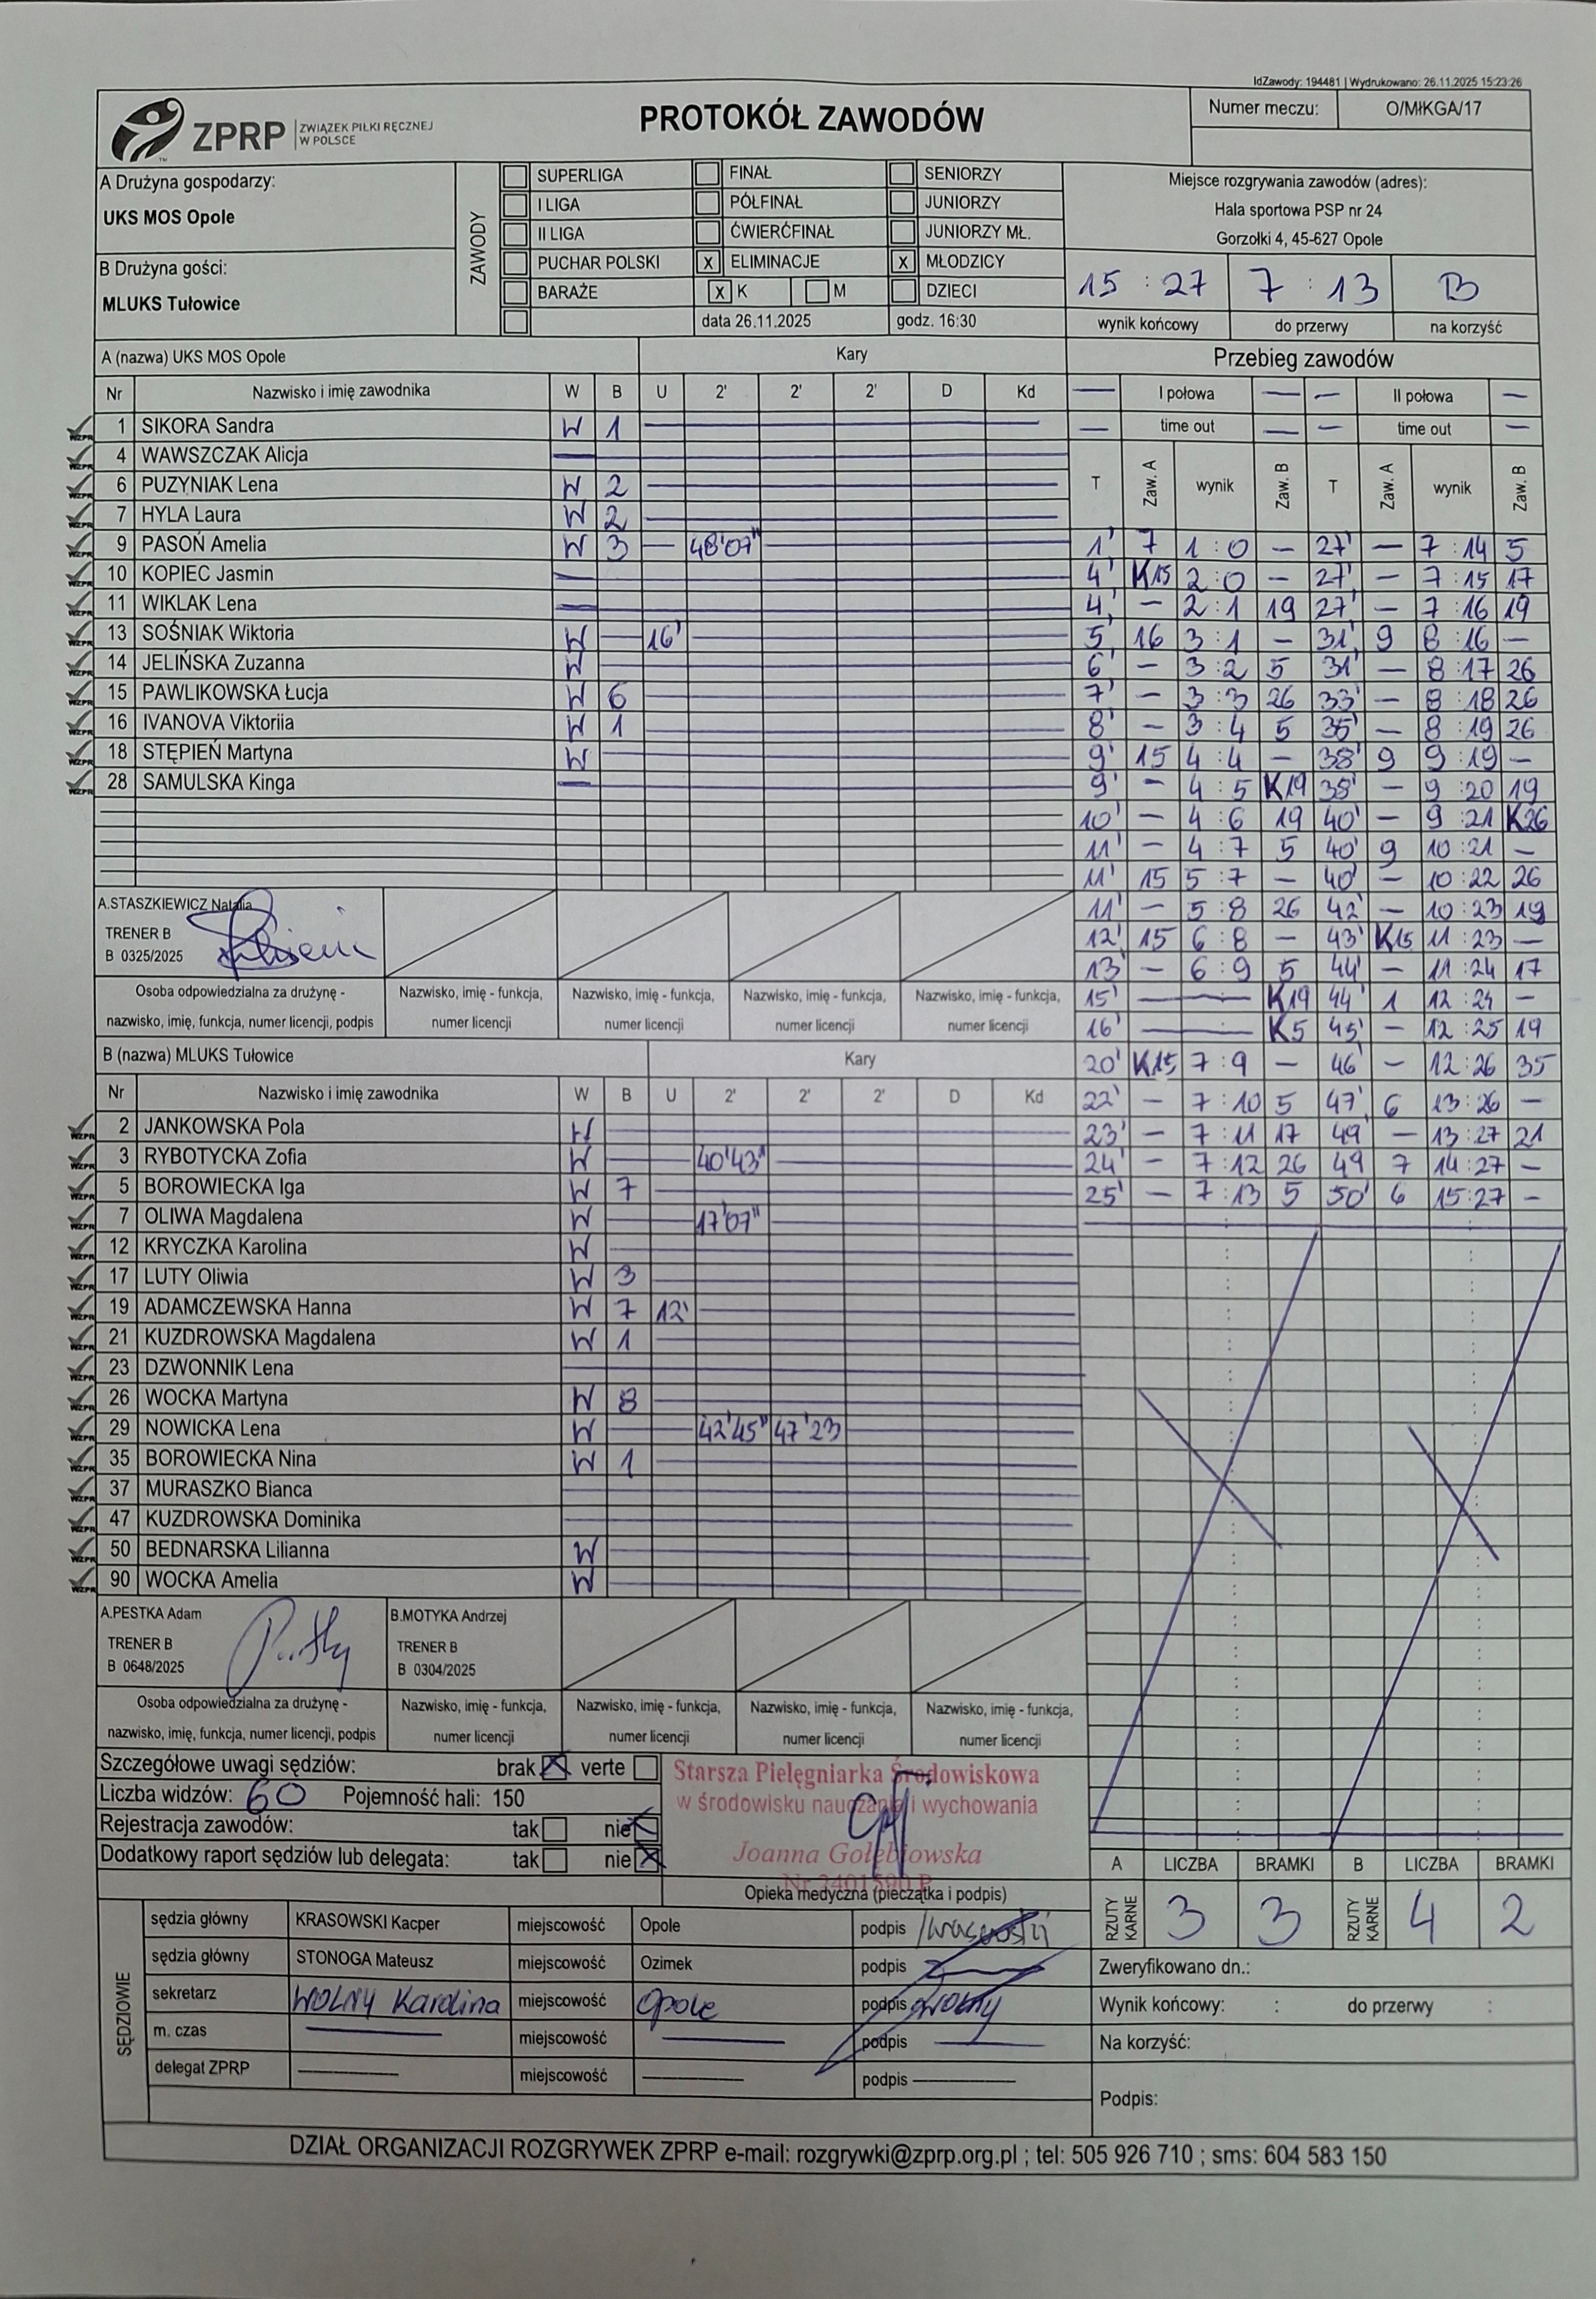 IdZawody: 194481 | Wydrukowano: 26.11.2025 15:23:26
ZPRP ZWIĄZEK PIŁKI RĘCZNEJ W POLSCE
PROTOKÓŁ ZAWODÓW
Numer meczu: O/MłKGA/17
A Drużyna gospodarzy:
UKS MOS Opole
B Drużyna gości:
MLUKS Tułowice
ZAWODY
SUPERLIGA FINAŁ SENIORZY
I LIGA PÓŁFINAŁ JUNIORZY
II LIGA ĆWIERĆFINAŁ JUNIORZY MŁ.
PUCHAR POLSKI x ELIMINACJE x MŁODZICY
BARAŻE x K M DZIECI
data 26.11.2025 godz. 16:30
Miejsce rozgrywania zawodów (adres):
Hala sportowa PSP nr 24
Gorzołki 4, 45-627 Opole
15 : 27 7 : 13 B
wynik końcowy do przerwy na korzyść
A (nazwa) UKS MOS Opole Kary
Nr Nazwisko i imię zawodnika W B U 2' 2' 2' D Kd
1 SIKORA Sandra W 1
4 WAWSZCZAK Alicja
6 PUZYNIAK Lena W 2
7 HYLA Laura W 2
9 PASOŃ Amelia W 3 — 48'07"
10 KOPIEC Jasmin
11 WIKLAK Lena
13 SOŚNIAK Wiktoria W — 16'
14 JELIŃSKA Zuzanna W
15 PAWLIKOWSKA Łucja W 6
16 IVANOVA Viktoriia W 1
18 STĘPIEŃ Martyna W
28 SAMULSKA Kinga
A.STASZKIEWICZ Natalia
TRENER B
B 0325/2025
Osoba odpowiedzialna za drużynę - nazwisko, imię, funkcja, numer licencji, podpis
Nazwisko, imię - funkcja, numer licencji
Nazwisko, imię - funkcja, numer licencji
Nazwisko, imię - funkcja, numer licencji
Nazwisko, imię - funkcja, numer licencji
B (nazwa) MLUKS Tułowice Kary
Nr Nazwisko i imię zawodnika W B U 2' 2' 2' D Kd
2 JANKOWSKA Pola W
3 RYBOTYCKA Zofia W — 40'43"
5 BOROWIECKA Iga W 7
7 OLIWA Magdalena W — 17'07"
12 KRYCZKA Karolina W
17 LUTY Oliwia W 3
19 ADAMCZEWSKA Hanna W 7 12'
21 KUZDROWSKA Magdalena W 1
23 DZWONNIK Lena
26 WOCKA Martyna W 8
29 NOWICKA Lena W — 42'45" 47'23
35 BOROWIECKA Nina W 1
37 MURASZKO Bianca
47 KUZDROWSKA Dominika
50 BEDNARSKA Lilianna W
90 WOCKA Amelia W
A.PESTKA Adam
TRENER B
B 0648/2025
B.MOTYKA Andrzej
TRENER B
B 0304/2025
Osoba odpowiedzialna za drużynę - nazwisko, imię, funkcja, numer licencji, podpis
Nazwisko, imię - funkcja, numer licencji
Nazwisko, imię - funkcja, numer licencji
Nazwisko, imię - funkcja, numer licencji
Nazwisko, imię - funkcja, numer licencji
Przebieg zawodów
— I połowa — — II połowa —
— time out — — time out —
T Zaw. A wynik Zaw. B T Zaw. A wynik Zaw. B
1' 7 1 : 0 — 27' — 7 : 14 5
4' K15 2 : 0 — 27' — 7 : 15 17
4' — 2 : 1 19 27' — 7 : 16 19
5' 16 3 : 1 — 31' 9 8 : 16 —
6' — 3 : 2 5 31' — 8 : 17 26
7' — 3 : 3 26 33' — 8 : 18 26
8' — 3 : 4 5 35' — 8 : 19 26
9' 15 4 : 4 — 38' 9 9 : 19 —
9' — 4 : 5 K19 38' — 9 : 20 19
10' — 4 : 6 19 40' — 9 : 21 K26
11' — 4 : 7 5 40' 9 10 : 21 —
11' 15 5 : 7 — 40' — 10 : 22 26
11' — 5 : 8 26 42' — 10 : 23 19
12' 15 6 : 8 — 43' K15 11 : 23 —
13' — 6 : 9 5 44' — 11 : 24 17
15' — K19 44' 1 12 : 24 —
16' — K5 45' — 12 : 25 19
20' K15 7 : 9 — 46' — 12 : 26 35
22' — 7 : 10 5 47' 6 13 : 26 —
23' — 7 : 11 17 49' — 13 : 27 21
24' — 7 : 12 26 49 7 14 : 27 —
25' — 7 : 13 5 50' 6 15 : 27 —
Szczegółowe uwagi sędziów: brak x verte
Liczba widzów: 60 Pojemność hali: 150
Rejestracja zawodów: tak nie x
Dodatkowy raport sędziów lub delegata: tak nie x
Starsza Pielęgniarka Środowiskowa
w środowisku nauczania i wychowania
Joanna Gołębiowska
Opieka medyczna (pieczątka i podpis)
A LICZBA BRAMKI B LICZBA BRAMKI
RZUTY KARNE 3 3 RZUTY KARNE 4 2
SĘDZIOWIE
sędzia główny KRASOWSKI Kacper miejscowość Opole podpis
sędzia główny STONOGA Mateusz miejscowość Ozimek podpis
sekretarz WOLNY Karolina miejscowość Opole podpis Wolny
m. czas — miejscowość — podpis —
delegat ZPRP — miejscowość — podpis —
Zweryfikowano dn.:
Wynik końcowy: : do przerwy :
Na korzyść:
Podpis:
DZIAŁ ORGANIZACJI ROZGRYWEK ZPRP e-mail: rozgrywki@zprp.org.pl ; tel: 505 926 710 ; sms: 604 583 150